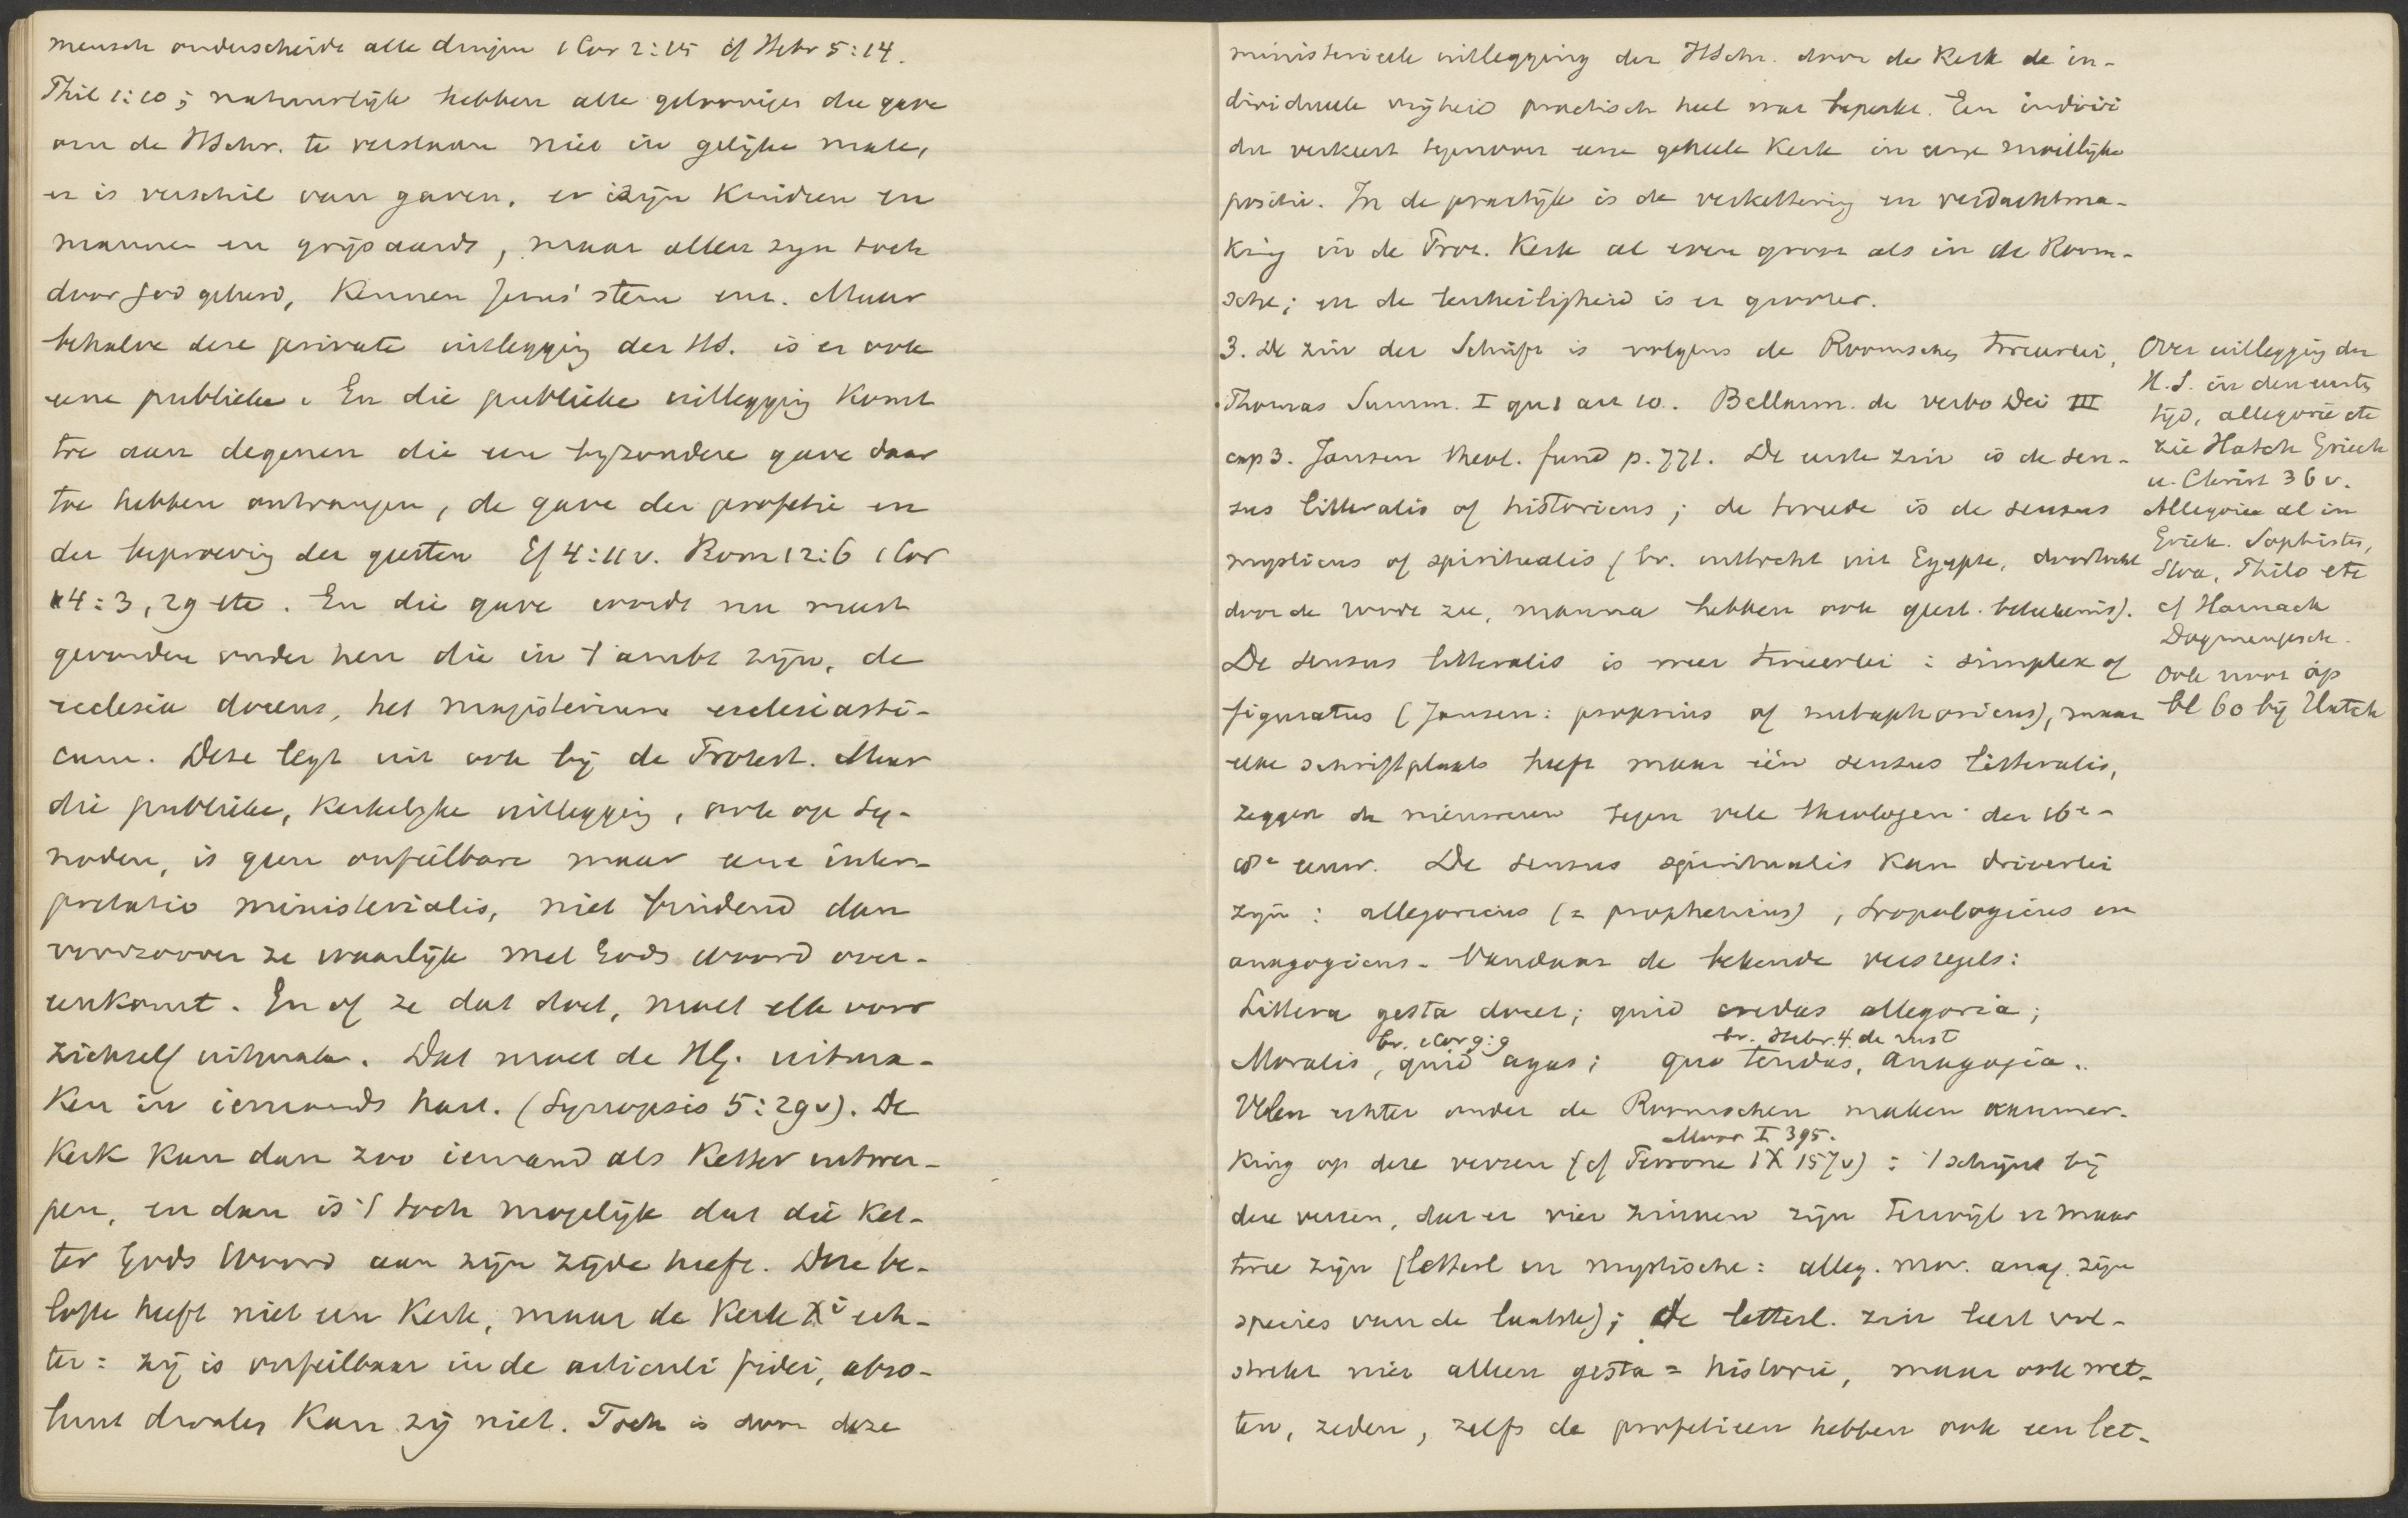 mensch onderscheidt alle dingen 1 Cor 2:15 cf Hebr 5:14.
Phil 1:10; natuurlijk hebben alle geloovigen die gave
om de HSchr. te verstaan niet in gelijke mate,
er is verschil van gaven, er zijn Kindren en
mannen en grijsaards, maar allen zijn toch
door God geleerd, Kennen Jezus' stem enz. Maar
behalve deze private uitlegging der HS. is er ook
eene publieke. En die publieke uitlegging Komt
toe aan degenen die een byzondere gave daar
toe hebben ontvangen, de gave der profetie en
der beproeving der geesten Ef 4:11v. Rom 12:6 1 Cor
14:3, 29 etc. En die gave wordt nu meest
gevonden onder hen die in 't ambt zijn, de
ecclesia docens, het magisterium ecclesiasti-
cum. Deze legt uit ook bij de Protest. Maar
die publieke, Kerkelijke uitlegging, ook op Sy-
noden, is geen onfeilbare maar eene inter-
pretatio ministerialis, niet bindend dan
voorzoover ze waarlijk met Gods woord over-
eenkomt. En of ze dat doet, moet elk voor
zichzelf uitmaken. Dat moet de HG. uitma-
Ken in iemands hart. (Synopsis 5:29v). De
Kerk Kan dan zoo iemand als Ketter uitwer-
pen, en dan is 't toch mogelijk dat die Ket-
ter Gods Woord aan zijn zijde heeft. Deze be-
lofte heeft niet een Kerk, maar de Kerk Xi ech-
ter: zij is onfeilbaar in de articuli fidei, abso-
luut dwalen Kan zij niet. Toch is door deze
ministerieele uitlegging der HSchr. door de Kerk de in-
dividueele vrijheid practisch heel wat beperkt. Een indivi
du verkeert tegenover eene geheele Kerk in eene moeilijke
positie. In de practijk is de verkettering en verdachtma-
King in de Prot. Kerk al even groot als in de Room-
sche; en de onheiligheid is er grooter.
3. De zin der Schrift is volgens de Roomschen tweeerlei,
Thomas Summ. I qu 1 art 10. Bellarm. de verbo Dei III
cap 3. Jansen theol. fund p. 771. De eerste zin is de sen-
sus litteralis of historicus; de tweede is de sensus
mysticus of spiritualis (bv. uittocht uit Egypte, doortocht
door de roode zee, manna hebben ook geest. beteekenis).
De sensus litteralis is weer tweeerlei: simplex of
figuratus (Jansen: proprius of metaphoricus), maar
elke schriftplaats heeft maar één sensus litteralis,
zeggen de nieuweren tegen vele theologen der 16e-
18e eeuw. De sensus spiritualis Kan drieerlei
zijn: allegoricus (= propheticus), tropologicus en
anagogicus. Vandaar de bekende versregels:
Littera gesta docet; quid credas allegoria;
bv. 1 Cor 9:9 bv. Hebr. 4 de rust
Moralis, quid agas; quo tendas, anagogia.
Velen echter onder de Roomschen maken aanmer-
Moor I 395.
King op deze verzen (cf Perrone IX 157v): 't schijnt bij
deze verzen, dat er vier zinnen zijn terwijl er maar
twee zijn (letterl en mystische: alleg. mor. anag. zijn
species van de laatste); de letterl. zin leert vol-
strekt niet alleen gesta = historie, maar ook wet-
ten, zeden, zelfs de profetieen hebben ook een let-
Over uitlegging der
H.S. in den eersten
tijd, allegorie etc
zie Hatch Griech
u. Christ 36 v.
Allegorie al in
Griek. Sophisten,
Stoa, Philo etc
cf Harnack
Dogmengesch.
Ook noot op
bl 60 bij Hatch